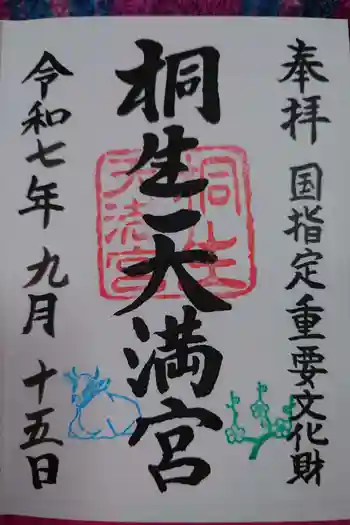 奉拝 国指定重要文化財
桐生天満宮
桐生
天満宮
令和七年 九月 十五日